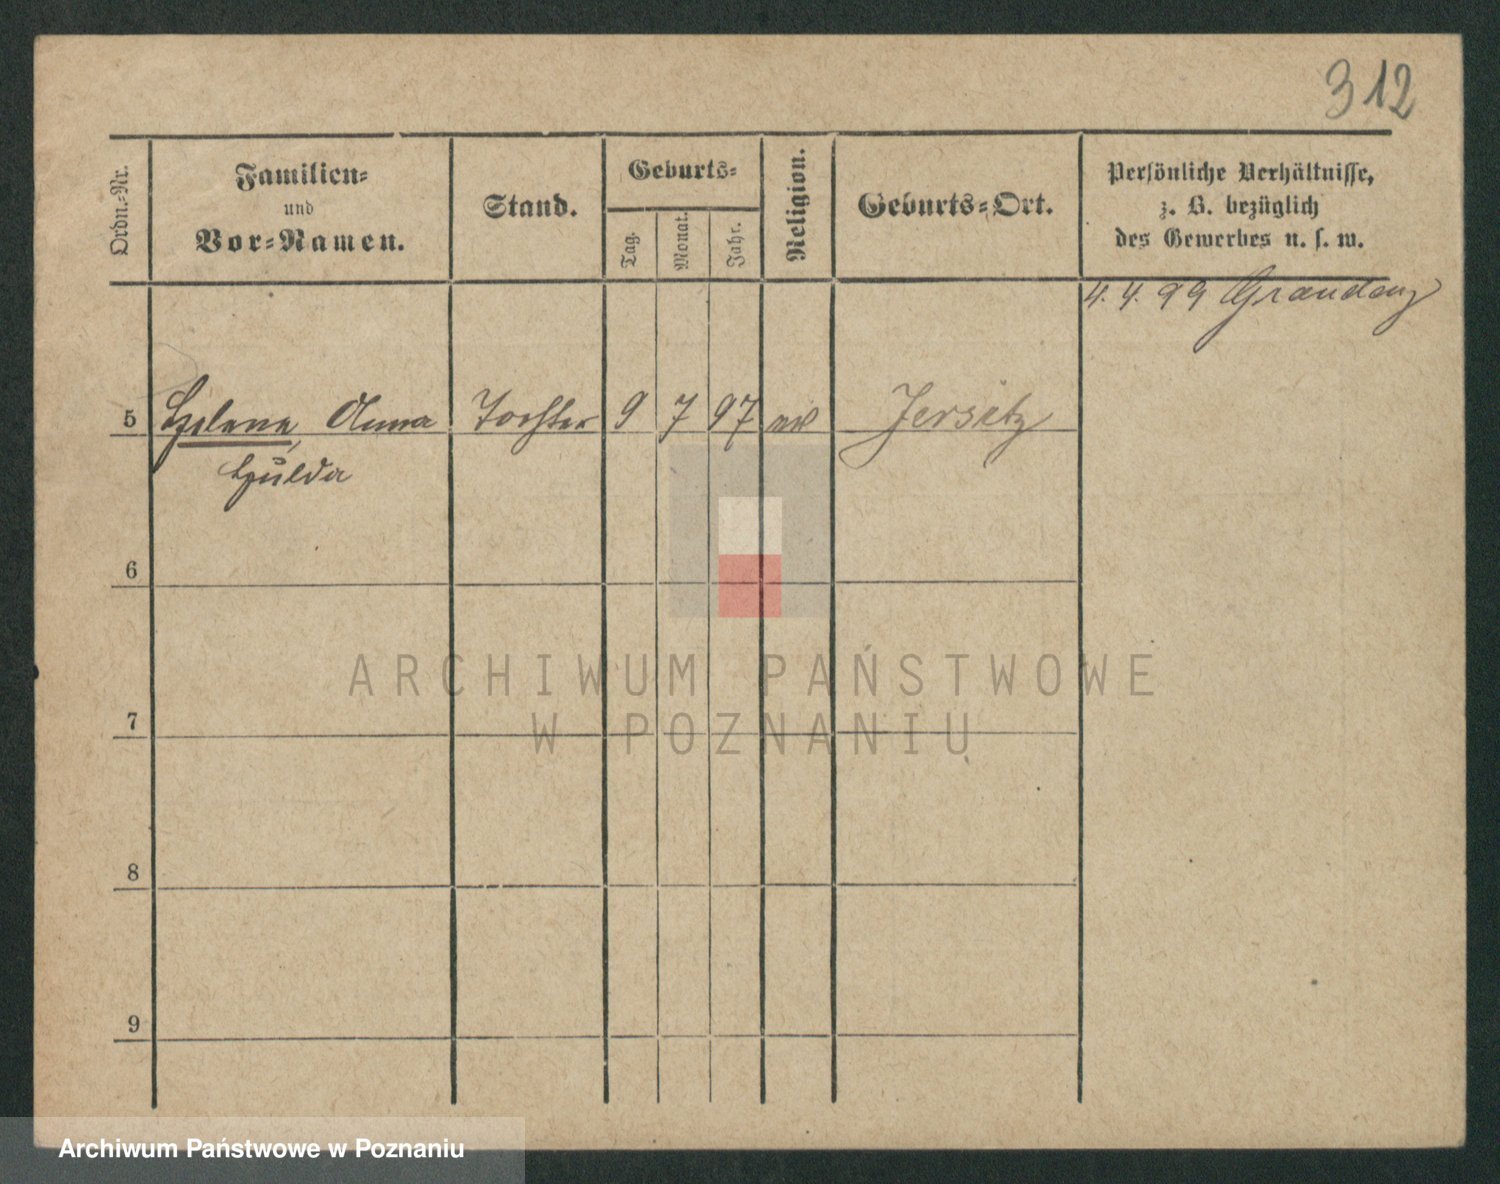 312
Ordn.-Nr.
Familien-
und
Vor-Namen.
Stand.
Geburts-
Tag.
Monat.
Jahr.
Religion.
Geburts-Ort.
Persönliche Verhältnisse,
z. B. bezüglich
des Gewerbes u. s. w.
4. 4. 99 Graudenz
5 Helene, Anna Tochter 9 7 97 Jersitz
Hulda
6
7
8
9
ARCHIWUM PAŃSTWOWE
W POZNANIU
Archiwum Państwowe w Poznaniu